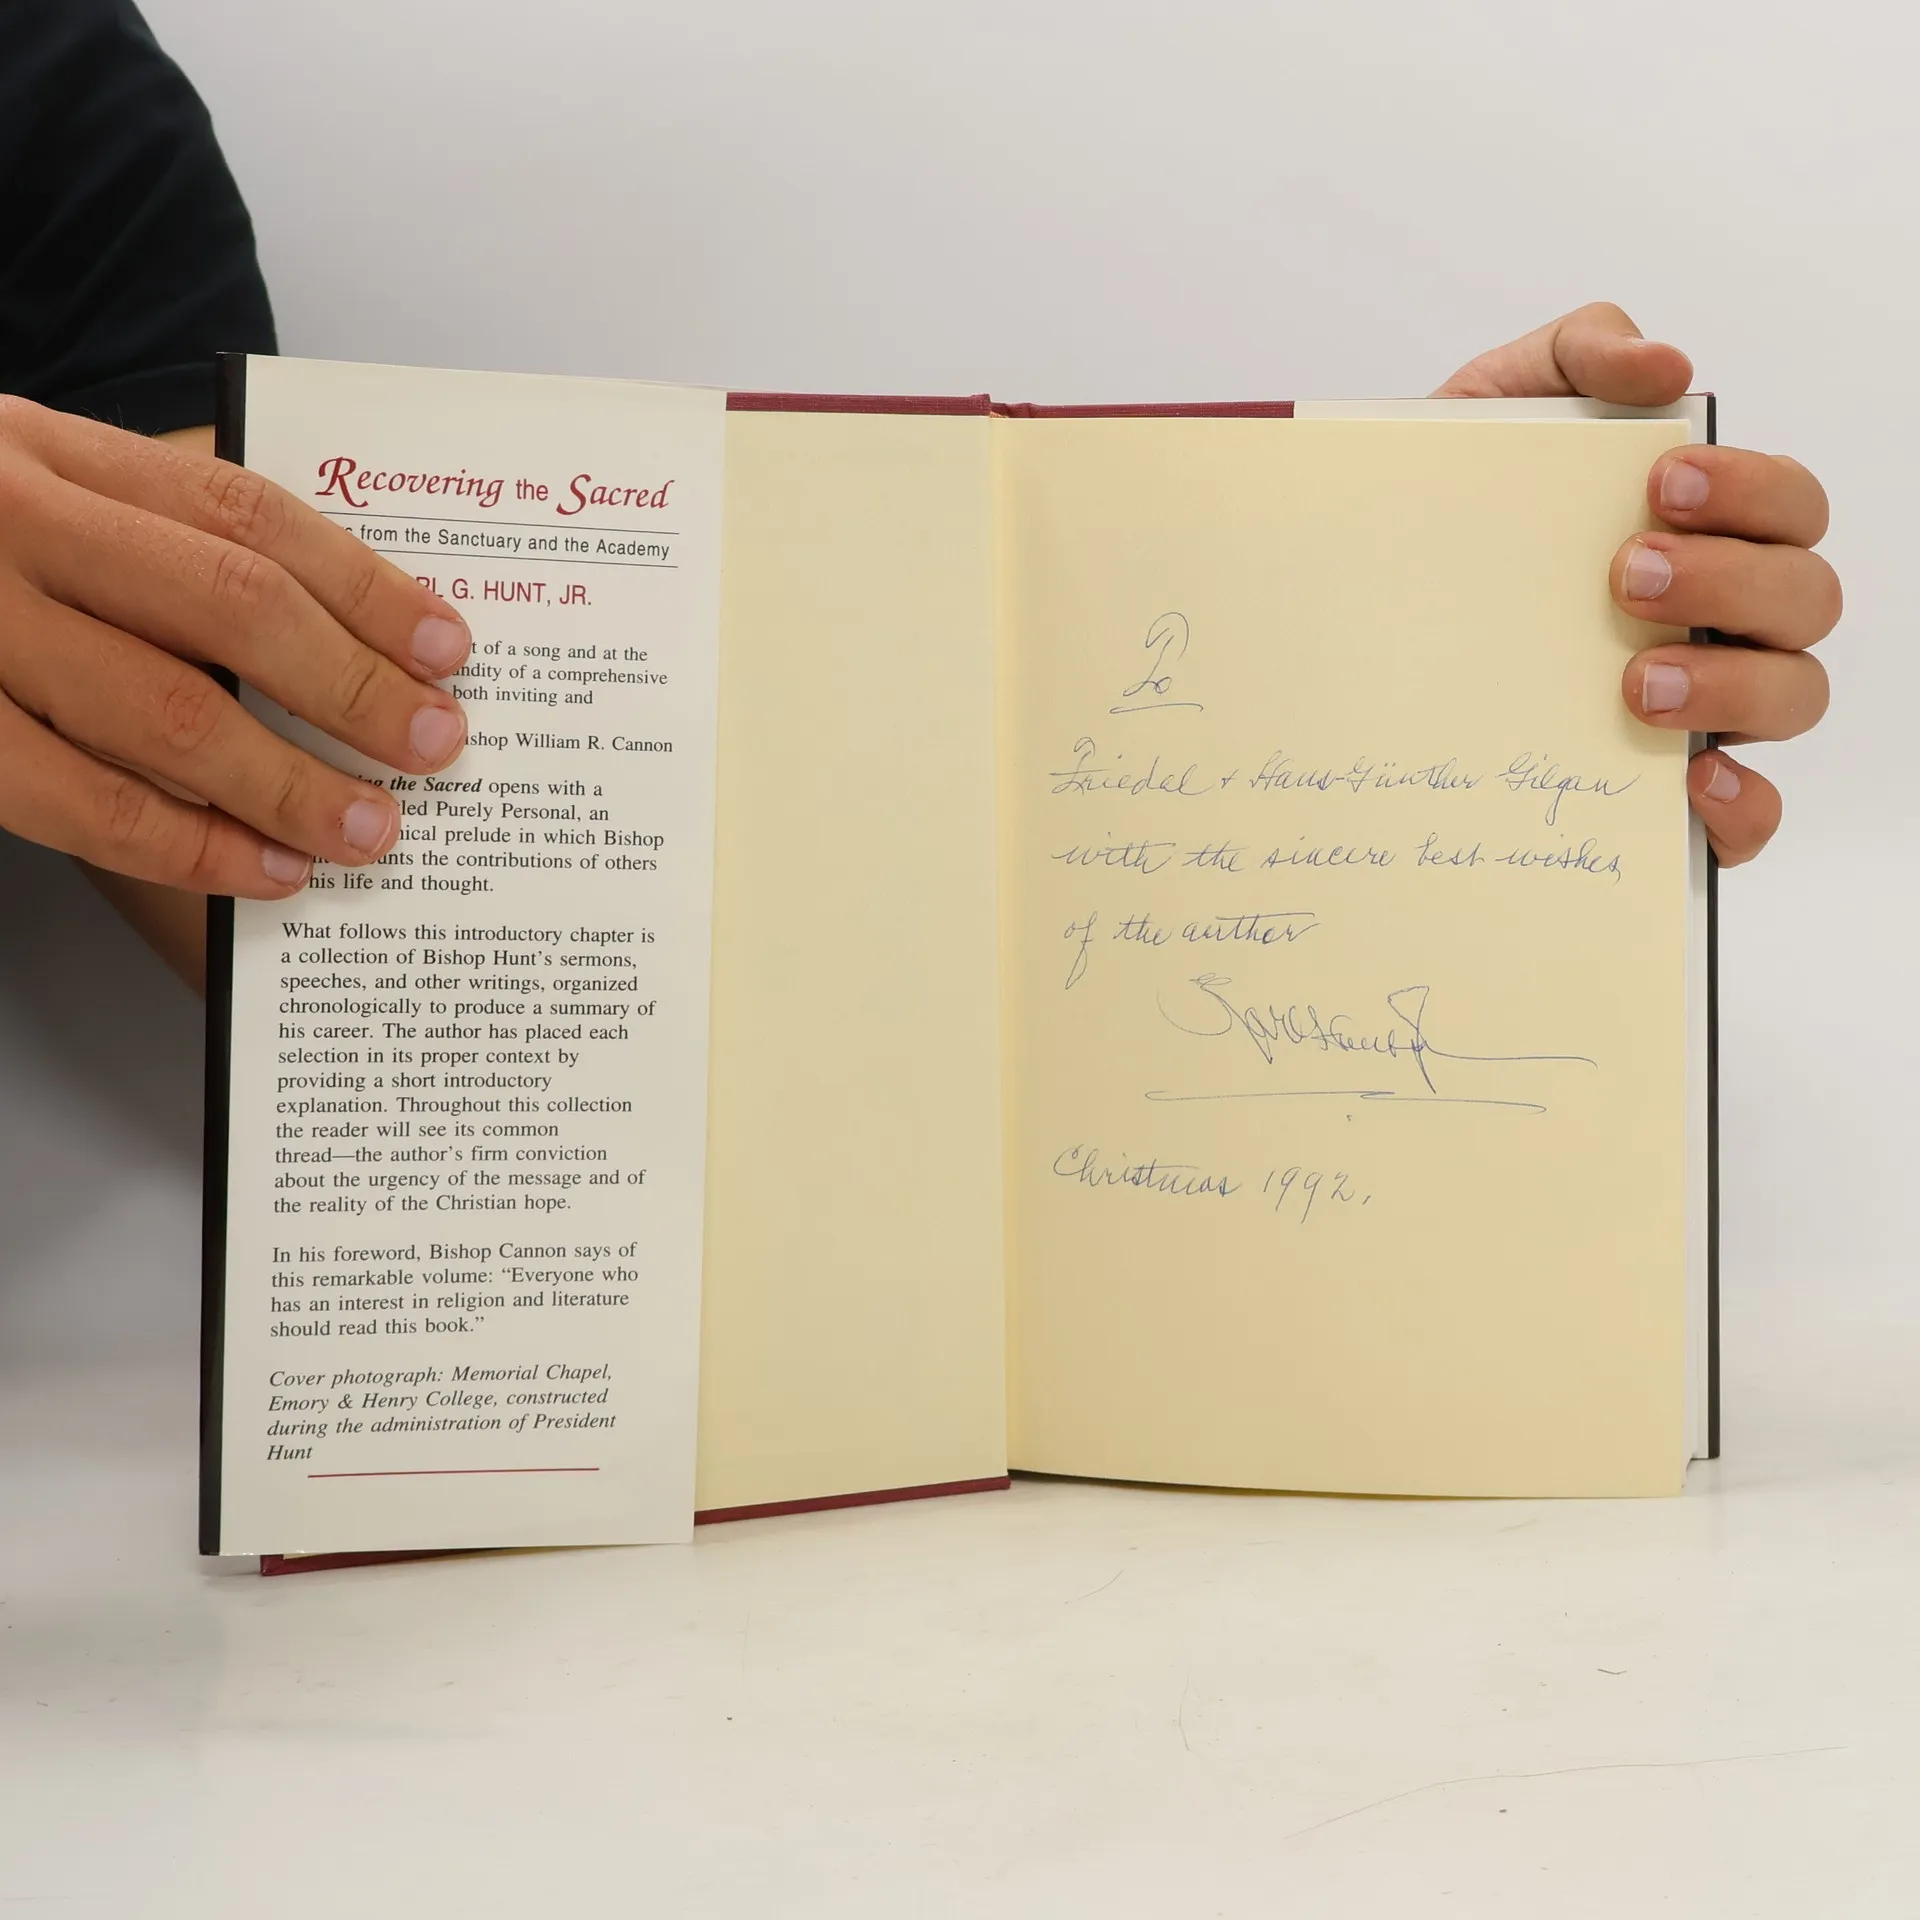 Recovering the Sacred
from the Sanctuary and the Academy
G. HUNT, JR.
of a song and at the
of a comprehensive
both inviting and
William R. Cannon
the Sacred opens with a
Purely Personal, an
prelude in which Bishop
the contributions of others
his life and thought.
What follows this introductory chapter is
a collection of Bishop Hunt's sermons,
speeches, and other writings, organized
chronologically to produce a summary of
his career. The author has placed each
selection in its proper context by
providing a short introductory
explanation. Throughout this collection
the reader will see its common
thread—the author's firm conviction
about the urgency of the message and of
the reality of the Christian hope.
In his foreword, Bishop Cannon says of
this remarkable volume: “Everyone who
has an interest in religion and literature
should read this book.”
Cover photograph: Memorial Chapel,
Emory & Henry College, constructed
during the administration of President
Hunt
To
Friedal + Hans-Günther Gilgan
with the sincere best wishes
of the author
Earl G. Hunt, Jr.
Christmas 1992.